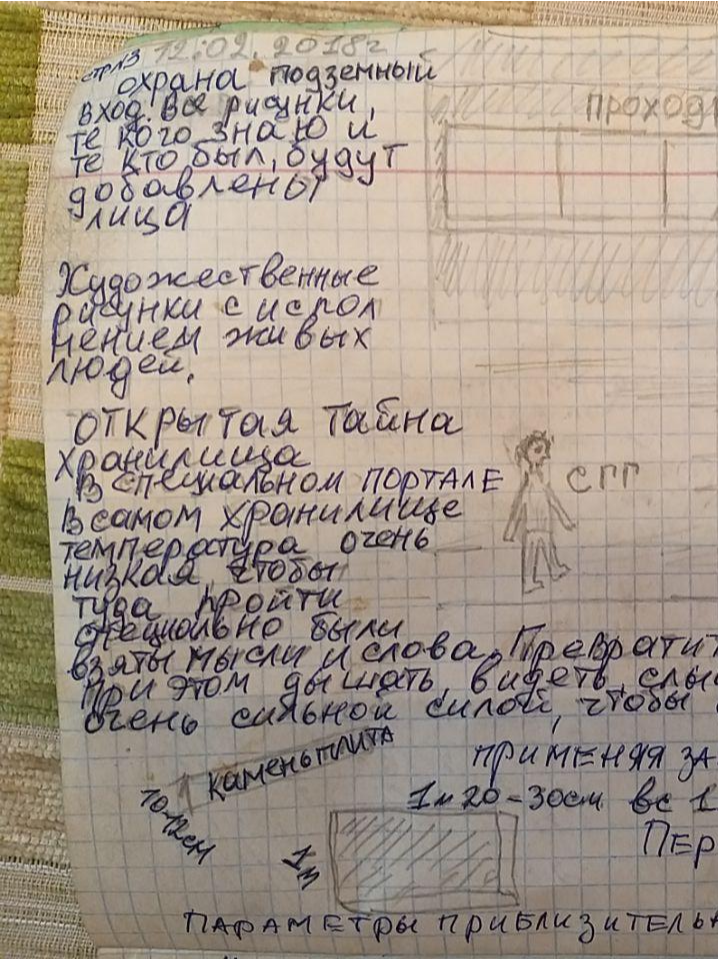 12:02.2018г
стр 13
охрана подземный
вход. Все рисунки,
те кого знаю и
те кто был, будут
добавлены
лица
ПРОХОД
Художественные
рисунки с испол
нением живых
людей.
ОТКРЫТАЯ тайна
хранилища
В специальном ПОРТАЛЕ
В самом хранилище
температура очень
низкая, чтобы
туда пройти
специально были
взяты мысли и слова. Превратит
При этом дышать, видеть, слы
очень сильной силой, чтобы
СГГ
ПРИМЕНЯЯ ЗА
камень плита
10-12см
1м 20-30см вс 1
1м
ПЕР
ПАРАМЕТРЫ ПРИБЛИЗИТЕЛЬ